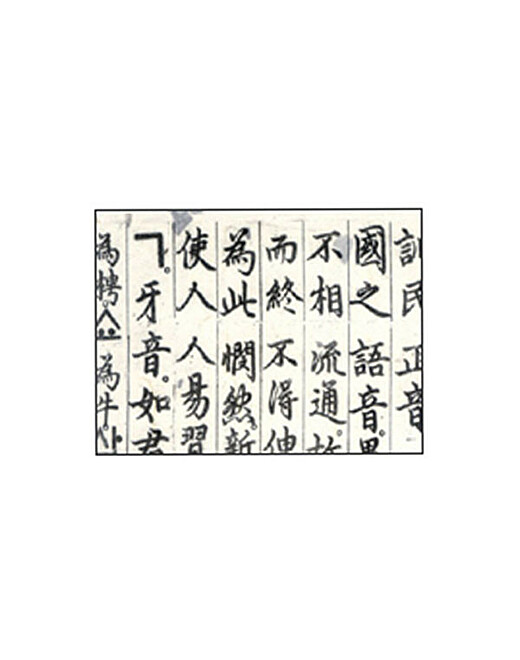 訓民正音
國之語音。異
不相流通。故
而終不得伸
為此憫然。新
使人人易習
ㄱ。牙音。如君
為
為牛。사